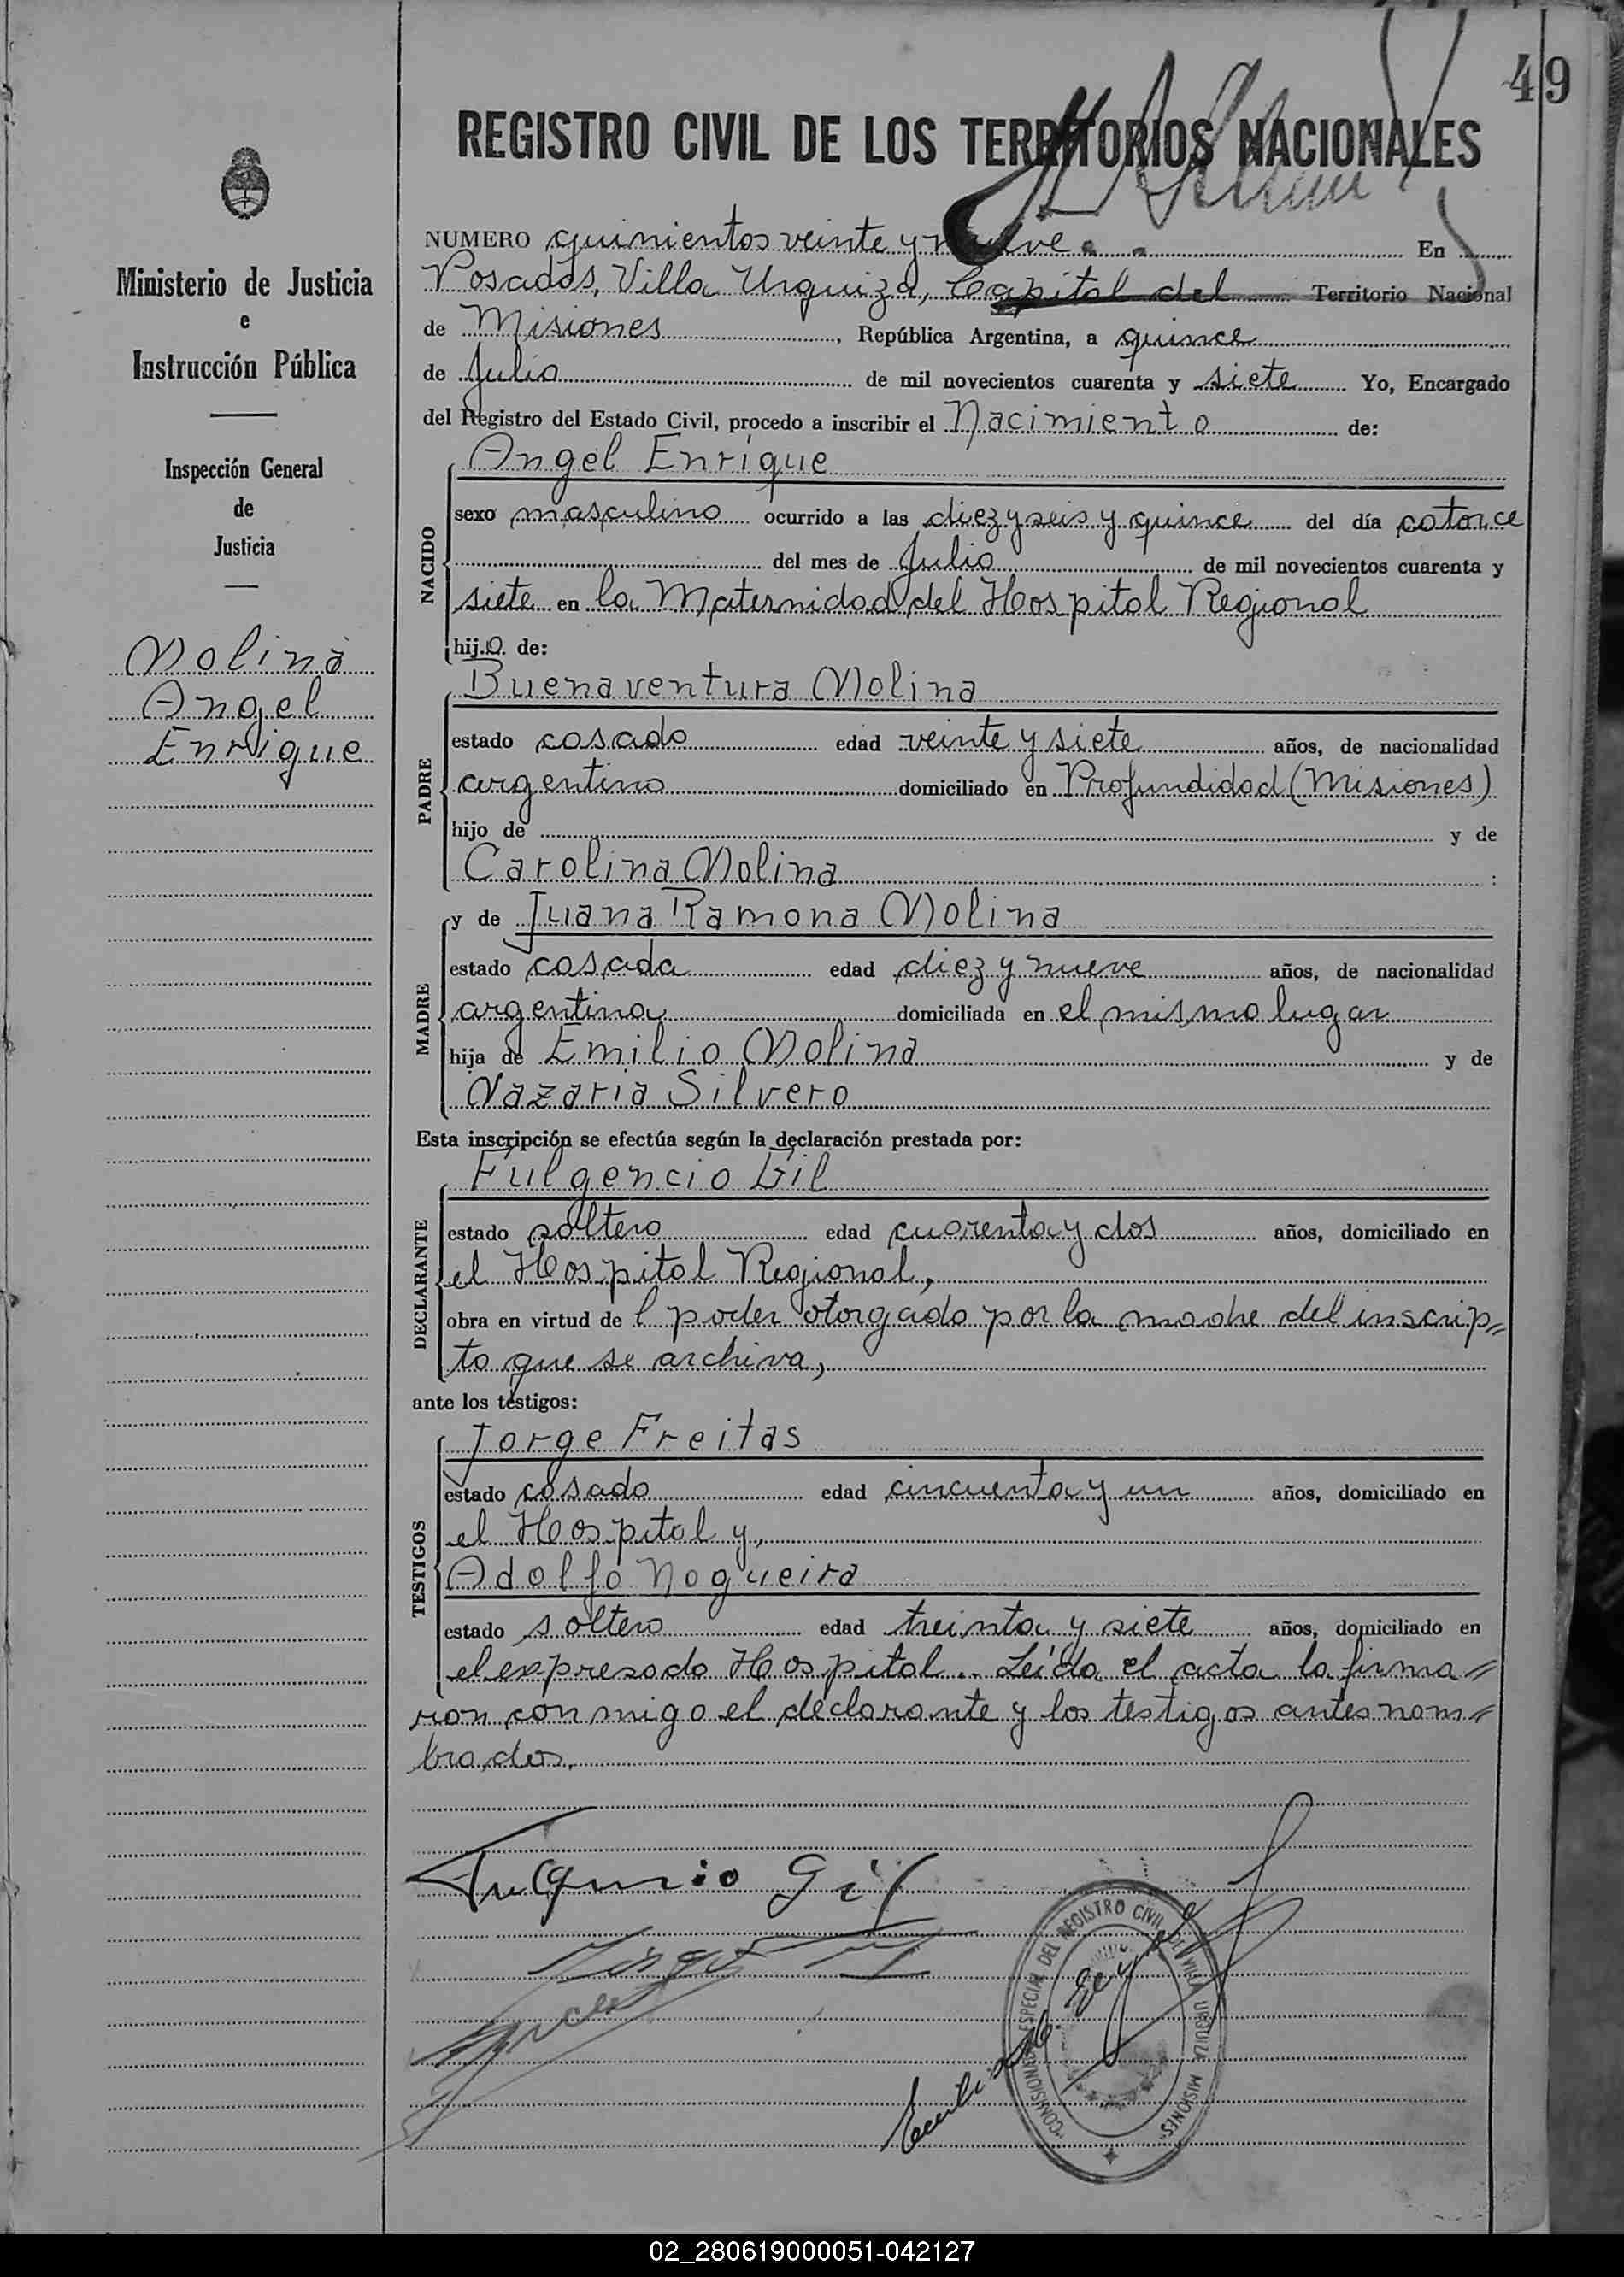 49
REGISTRO CIVIL DE LOS TERRITORIOS NACIONALES
Ministerio de Justicia
e
Instrucción Pública
Inspección General
de
Justicia
Molina
Angel
Enrique
NUMERO quinientos veinte y nueve.. En
Posadas, Villa Urquiza, Capital del Territorio Nacional
de Misiones, República Argentina, a quince
de Julio de mil novecientos cuarenta y siete Yo, Encargado
del Registro del Estado Civil, procedo a inscribir el Nacimiento de:
NACIDO
Angel Enrique
sexo masculino ocurrido a las diez y seis y quince del día catorce
del mes de Julio de mil novecientos cuarenta y
siete en la Maternidad del Hospital Regional
hijo de:
PADRE
Buenaventura Molina
estado casado edad veinte y siete años, de nacionalidad
argentino domiciliado en Profundidad (Misiones)
hijo de y de
Carolina Molina :
MADRE
y de Juana Ramona Molina
estado casada edad diez y nueve años, de nacionalidad
argentina domiciliada en el mismo lugar
hija de Emilio Molina y de
Nazaria Silvero
Esta inscripción se efectúa según la declaración prestada por:
DECLARANTE
Fulgencio Gil
estado soltero edad cuarenta y dos años, domiciliado en
el Hospital Regional,
obra en virtud de l poder otorgado por la madre del inscrip=
to que se archiva,
ante los testigos:
TESTIGOS
Jorge Freitas
estado casado edad cincuenta y un años, domiciliado en
el Hospital y,
Adolfo Nogueira
estado soltero edad treinta y siete años, domiciliado en
el expresado Hospital.. Leída el acta la firma=
ron con migo el declarante y los testigos antes nom=
brados.
Fulgencio Gil
"COMISIONADO ESPECIAL DEL REGISTRO CIVIL DE VILLA URQUIZA MISIONES"
02_280619000051-042127